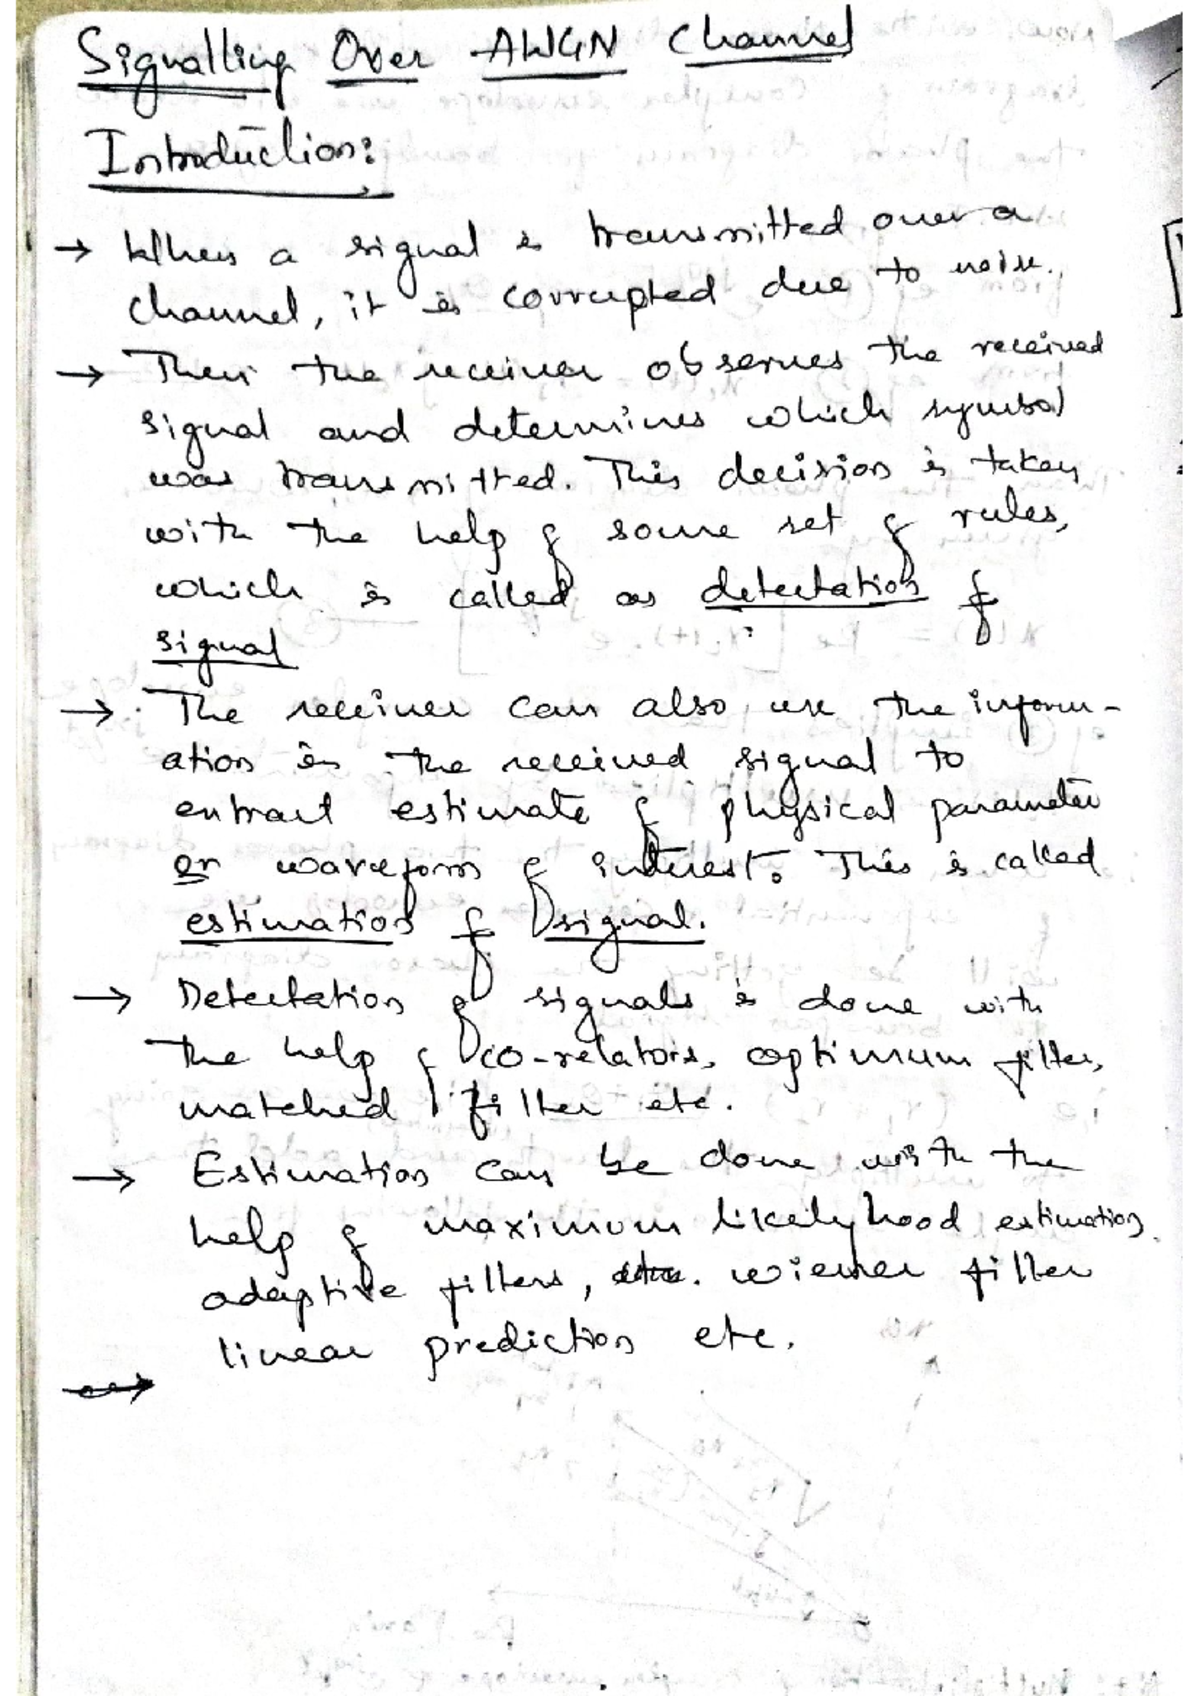 Signalling Over AWGN Channel
Introduction:
→ When a signal is transmitted over a
channel, it is corrupted due to noise.
→ Then the receiver observes the received
signal and determines which symbol
was transmitted. This decision is taken
with the help of some set of rules,
which is called as detectation of
signal
→ The receiver can also use the inform-
ation in the received signal to
extract estimate of physical parameter
or waveform of interest. This is called
estimation of signal.
→ Detectation of signals is done with
the help of co-relators, optimum filter,
matched filter etc.
→ Estimation can be done with the
help of maximum likelyhood estimation
adaptive filters, wiener filter
linear prediction etc.
→